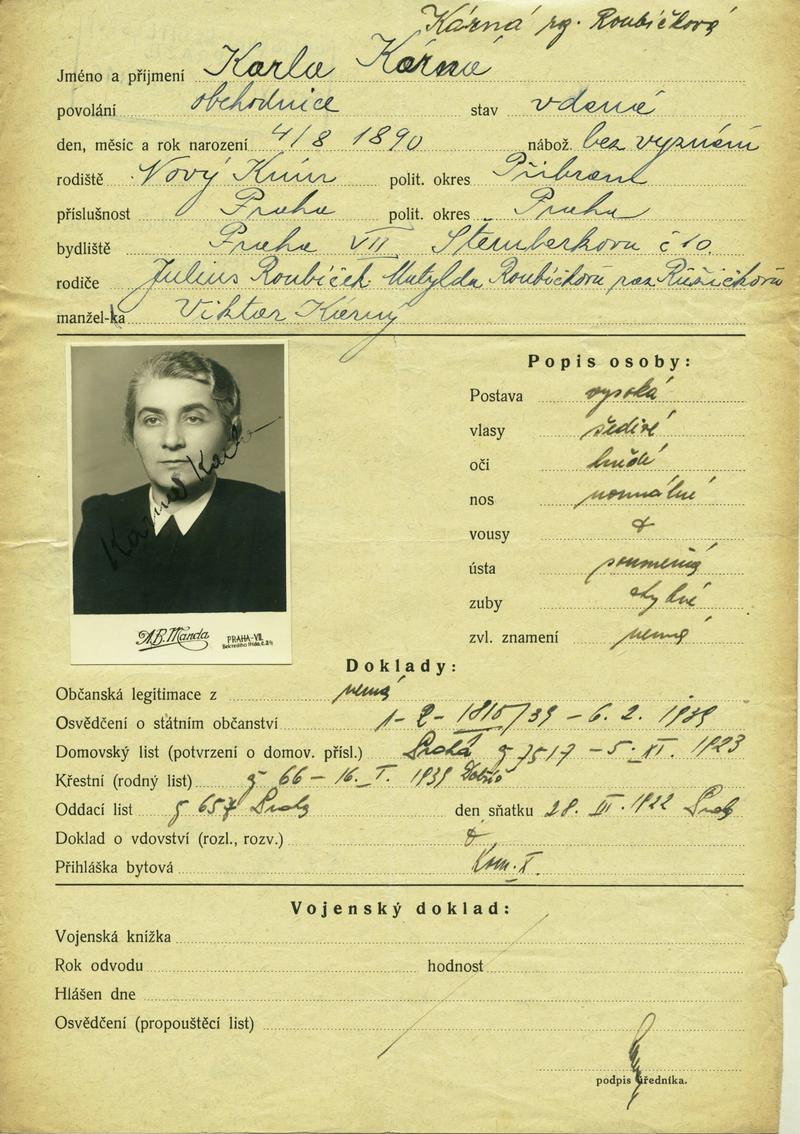 Kárná rg. Roubíčková
Jméno a příjmení Karla Kárná
povolání obchodnice stav vdaná
den, měsíc a rok narození 4/8 1890 nábož. bez vyznání
rodiště Nový Knín polit. okres Příbram
příslušnost Praha polit. okres Praha
bydliště Praha VII Šternberkova č 10.
rodiče Julius Roubíček Matylda Roubíčková roz. Růžičková
manžel-ka Viktor Kárný
Popis osoby:
Postava vysoká
vlasy šedivé
oči hnědé
nos normální
vousy
ústa souměrná
zuby
zvl. znamení nemá
Kárná Karla
A.B. Manda PRAHA-VII. Belcrediho třída
Doklady:
Občanská legitimace z nemá
Osvědčení o státním občanství 1-2-1810/39 - 6. 2. 1939
Domovský list (potvrzení o domov. přísl.) Praha č 7517 - 5. XI. 1923
Křestní (rodný list) č 66 - 16. I. 1939 Dobříš
Oddací list č 657 Praha den sňatku 28. III. 1922 Praha
Doklad o vdovství (rozl., rozv.)
Přihláška bytová Kom. X.
Vojenský doklad:
Vojenská knížka
Rok odvodu hodnost
Hlášen dne
Osvědčení (propouštěcí list)
podpis úředníka.